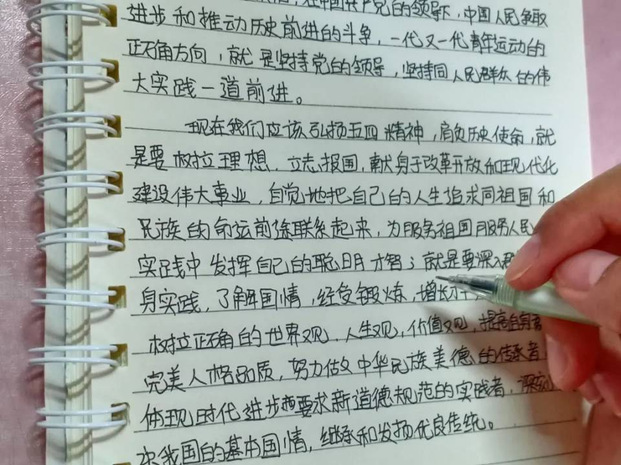 在中国共产党的领导下,中国人民争取
进步和推动历史前进的斗争,一代又一代青年运动的
正确方向,就是坚持党的领导,坚持同人民群众在的伟
大实践一道前进。
现在我们应该弘扬五四精神,肩负历史使命,就
是要树立理想,立志报国,献身于改革开放和现代化
建设伟大事业,自觉地把自己的人生追求同祖国和
民族的命运前途联系起来,为服务祖国服务人民
实践中发挥自己的聪明才智;就是要深入
身实践,了解国情,经受锻炼,增长才
树立正确的世界观,人生观,价值观,提高自身
完美人格品质,努力做中华民族美德的传承者
体现时代进步要求新道德规范的实践者,深刻
我国的基本国情,继承和发扬优良传统。